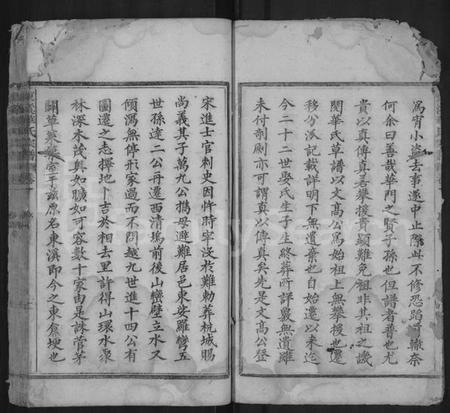 為宵小盜去事遂中止際此不修恐蹈前轍奈
何余曰善哉華門之賢子孫也但譜者普也尤
貴以真傳真若攀援貴顯難免祖非其祖之譏
閱華氏草譜以文高公為始祖上無攀援也遷
移分派記載詳明下無遺棄也自始遷以來迄
今二十二世娶氏生子生終葬所詳異無遺雖
未付剞劂亦可謂真以傳真矣先是文高公登
宋進士官刺史因忤時宰沒於難勅葬杭城賜
尚義其子萬九公攜母避難居邑東安羅鸞五
世孫達二公再遷西清塢前後山巒壁立水又
傾瀉無停形家過而不閱越九世進十四公有
圖遷之志擇地卜吉於相去里許得山環水聚
林深木茂奧如曠如可容數十家由是誅菅茅
闢草萊築室于茲原名東溪即今之東倉埂也